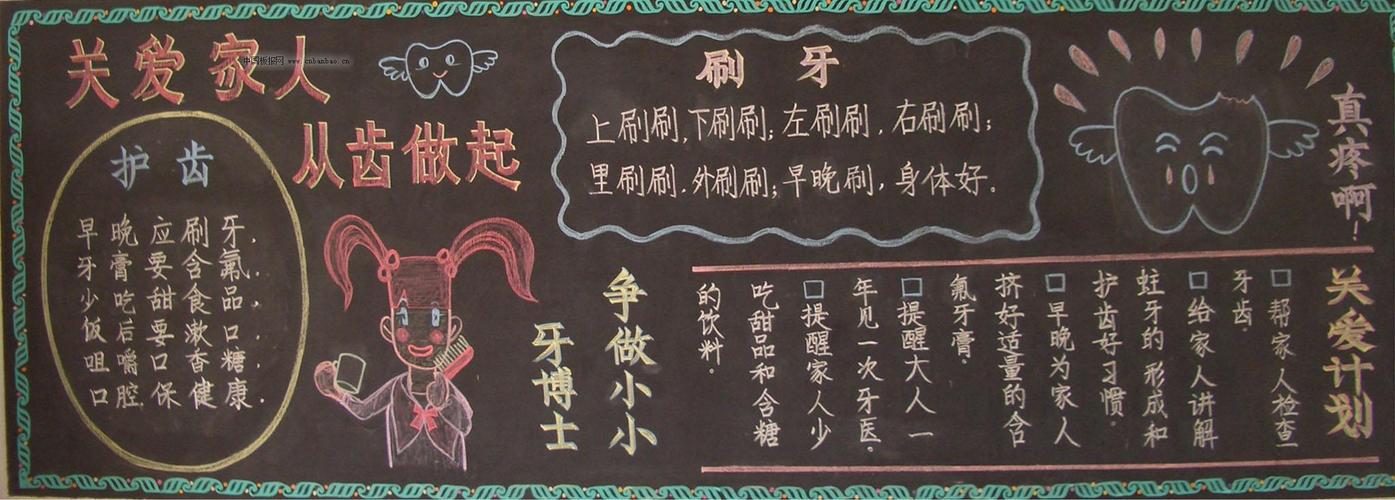 关爱家人
中国板报网 www.cnbanbao.cn
从齿做起
护齿
早晚应刷牙,
牙膏要含氟.
少吃甜食品,
饭后要漱口,
咀嚼口香糖,
口腔保健康.
争做小小
牙博士
刷牙
上刷刷,下刷刷;左刷刷,右刷刷;
里刷刷,外刷刷;早晚刷,身体好。
真疼啊!
关爱计划
□帮家人检查
牙齿.
□给家人讲解
蛀牙的形成和
护齿好习惯。
□早晚为家人
挤好适量的含
氟牙膏。
□提醒大人一
年见一次牙医。
□提醒家人少
吃甜品和含糖
的饮料.